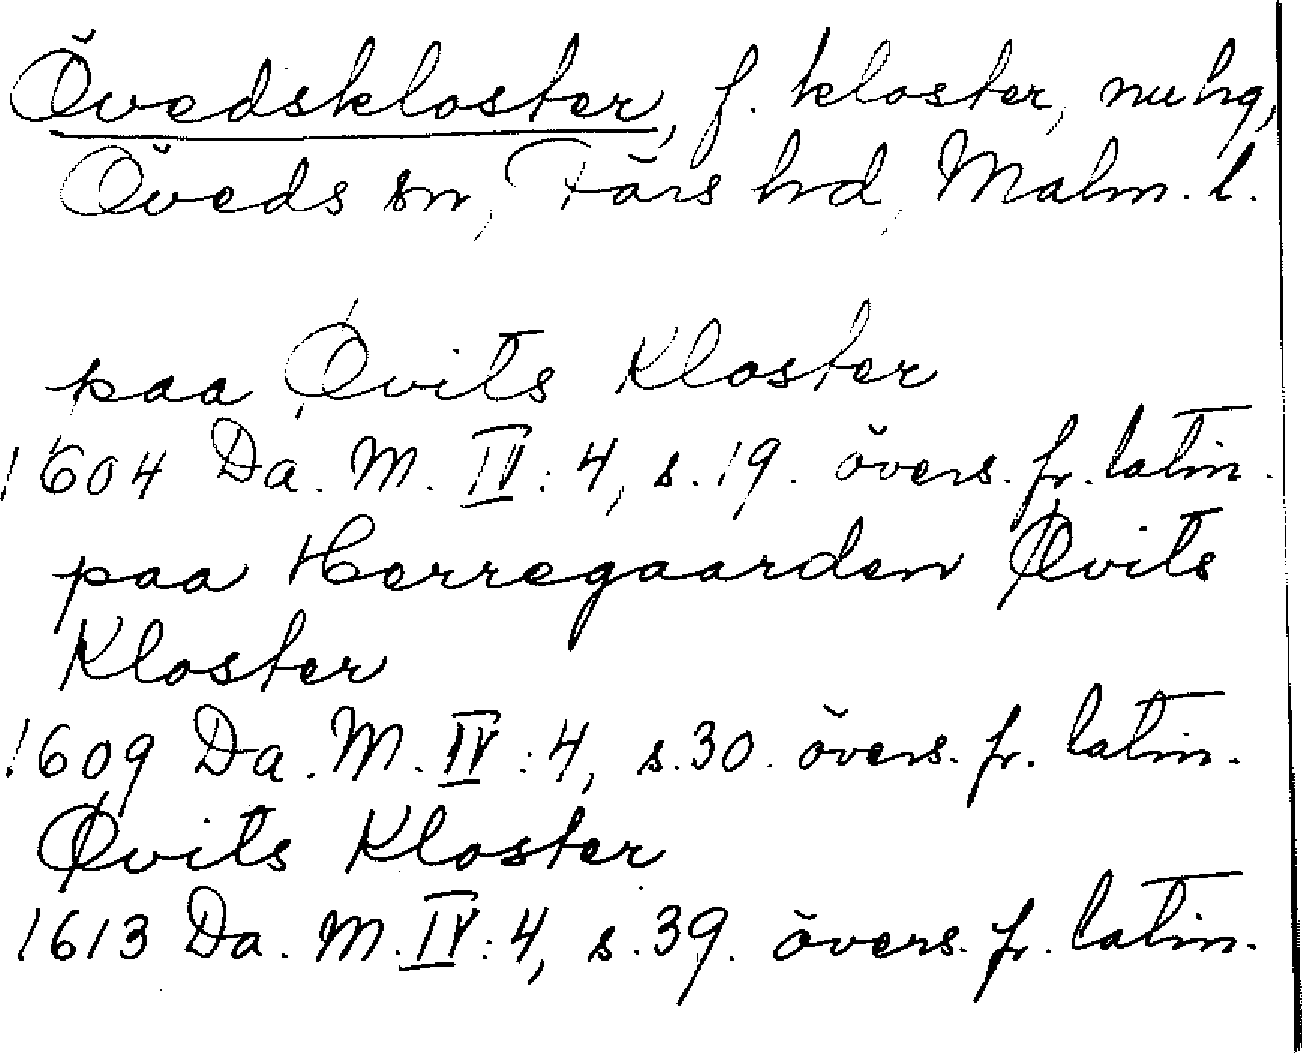 Övedskloster, f. kloster, nu hg,
Öveds sn, Färs hd, Malm. l.
paa Øvits Kloster
1604 Da. M. IV: 4, s. 19. övers. fr. latin.
paa Herregaarden Øvits
Kloster
1609 Da. M. IV: 4, s. 30. övers. fr. latin.
Øvits Kloster
1613 Da. M. IV: 4, s. 39. övers. fr. latin.